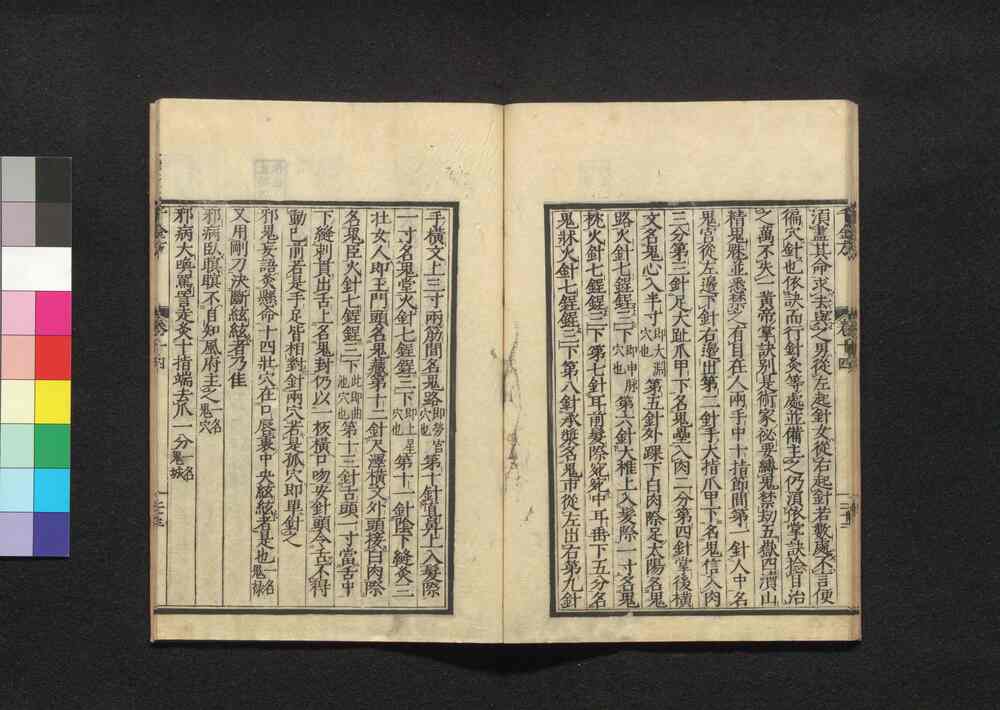 須盡其命求去與之男從左起針女從右起針若數處不言便
徧穴針也依訣而行針灸等處並備主之仍須依掌訣捻目治
之萬不失一黃帝掌訣別是術家祕要縛鬼禁劾五嶽四瀆山
精鬼魅並悉禁之有目在人兩手中十指節間第一針人中名
鬼宮從左邊下針右邊出第二針手大指爪甲下名鬼信入肉
三分第三針足大趾爪甲下名鬼壘入肉二分第四針掌後橫
文名鬼心入半寸即大淵穴也第五針外踝下白肉際足太陽名鬼
路火針七鋥鋥三下即申脈穴也第六針大椎上入髮際一寸名鬼
枕火針七鋥鋥三下第七針耳前髮際宛宛中耳垂下五分名
鬼牀火針七鋥鋥三下第八針承漿名鬼市從左出右第九針
手橫文上三寸兩筋間名鬼路即勞宮穴也第十針直鼻上入髮際
一寸名鬼堂火針七鋥鋥三下即上星穴也第十一針陰下縫灸三
壯女人即玉門頭名鬼藏第十二針尺澤橫文外頭接白肉際
名鬼臣火針七鋥鋥三下此即曲池穴也第十三針舌頭一寸當舌中
下縫刺貫出舌上名鬼封仍以一板橫口吻安針頭令舌不得
動已前若是手足皆相對針兩穴若是孤穴即單針之
邪鬼妄語灸懸命十四壯穴在口脣裏中央絃絃者是也一名鬼祿
又用剛刀決斷絃絃者乃佳
邪病臥瞑瞑不自知風府主之一名鬼穴
邪病大喚罵詈走灸十指端去爪一分一名鬼城